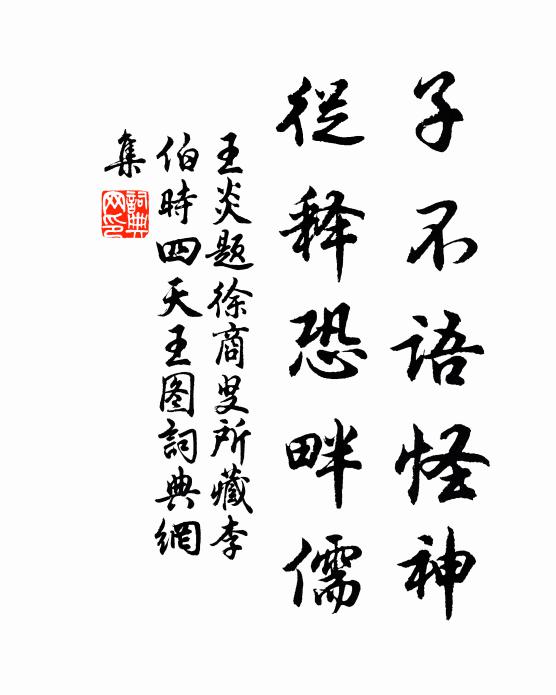 子不语怪神
從释恐畔儒
王炎题徐商叟所藏李
伯時四天王图詞典網
集
詞典网印